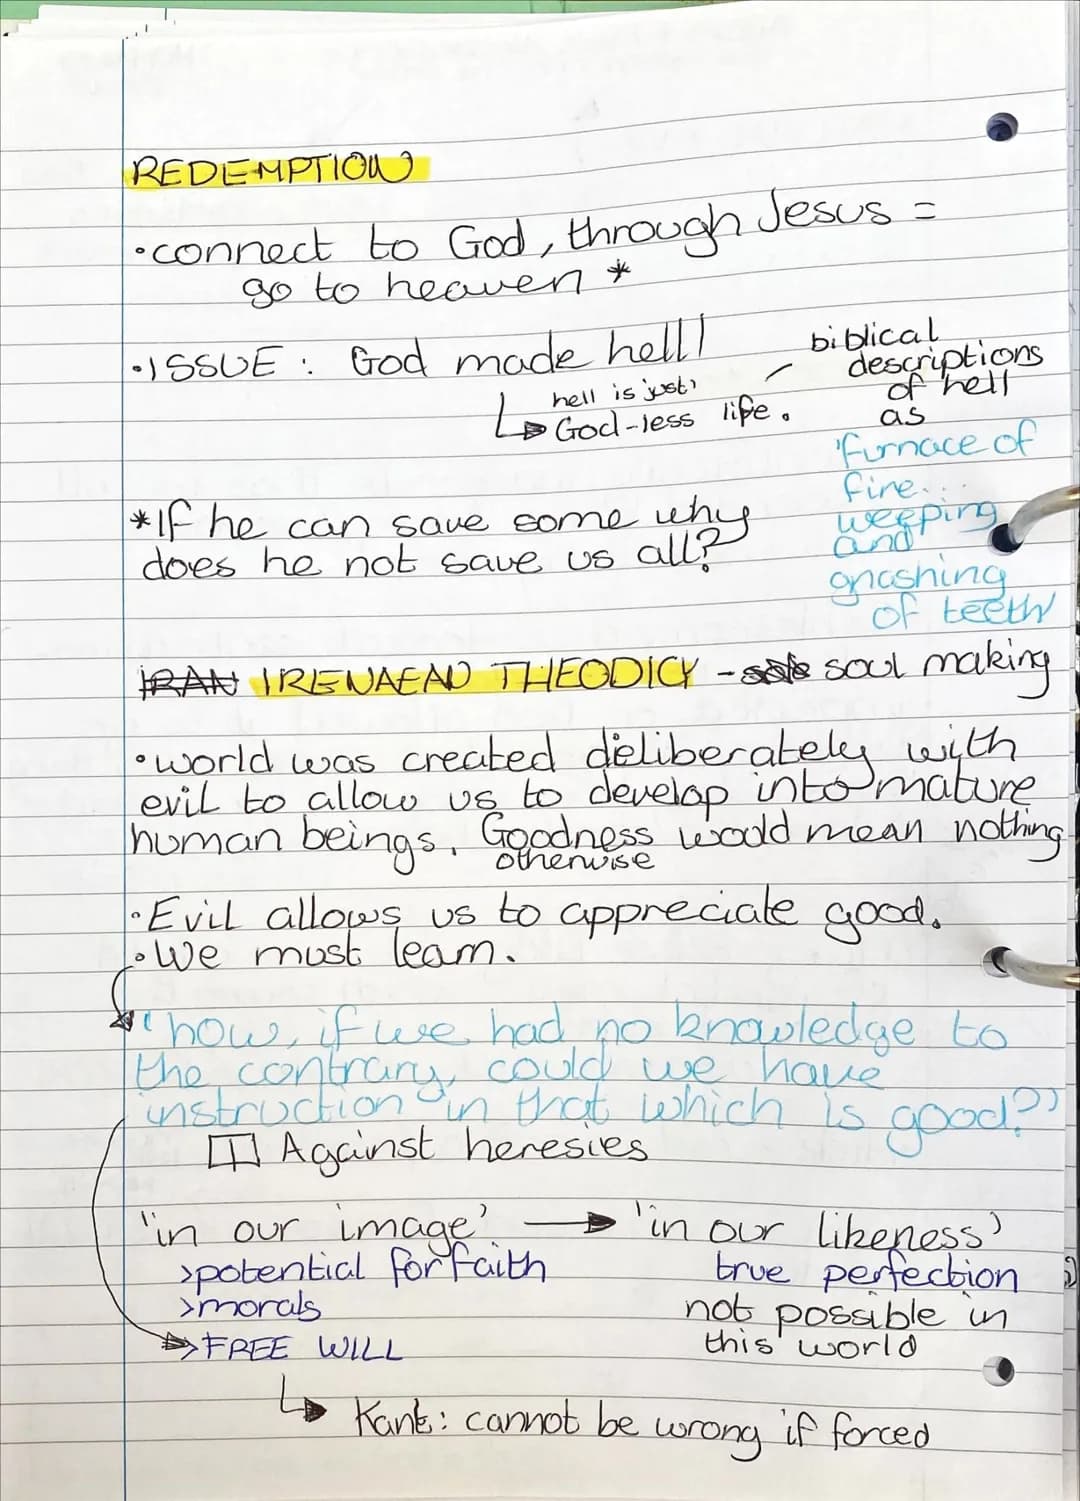 REDEMPTION
• connect to God, through Jesus =
go to heaven *
• ISSUE : God made hell!
hell is just
God-less life.
biblical
descriptions
of hell
as
'furnace of
fire...
weeping
and
gnashing
of teeth'
*If he can save some why
does he not save us all?
IRAN IRENAEAN THEODICY - sole soul making
• world was created deliberately with
evil to allow us to develop into mature
human beings. Goodness would mean nothing
otherwise
• Evil allows us to appreciate good.
• We must learn.
'how, if we had no knowledge to
the contrary, could we have
instruction in that which is good?'
Against heresies
'in our image' → 'in our likeness'
>potential for faith
>morals
>FREE WILL
true perfection
not possible in
this world
Kant: cannot be wrong if forced